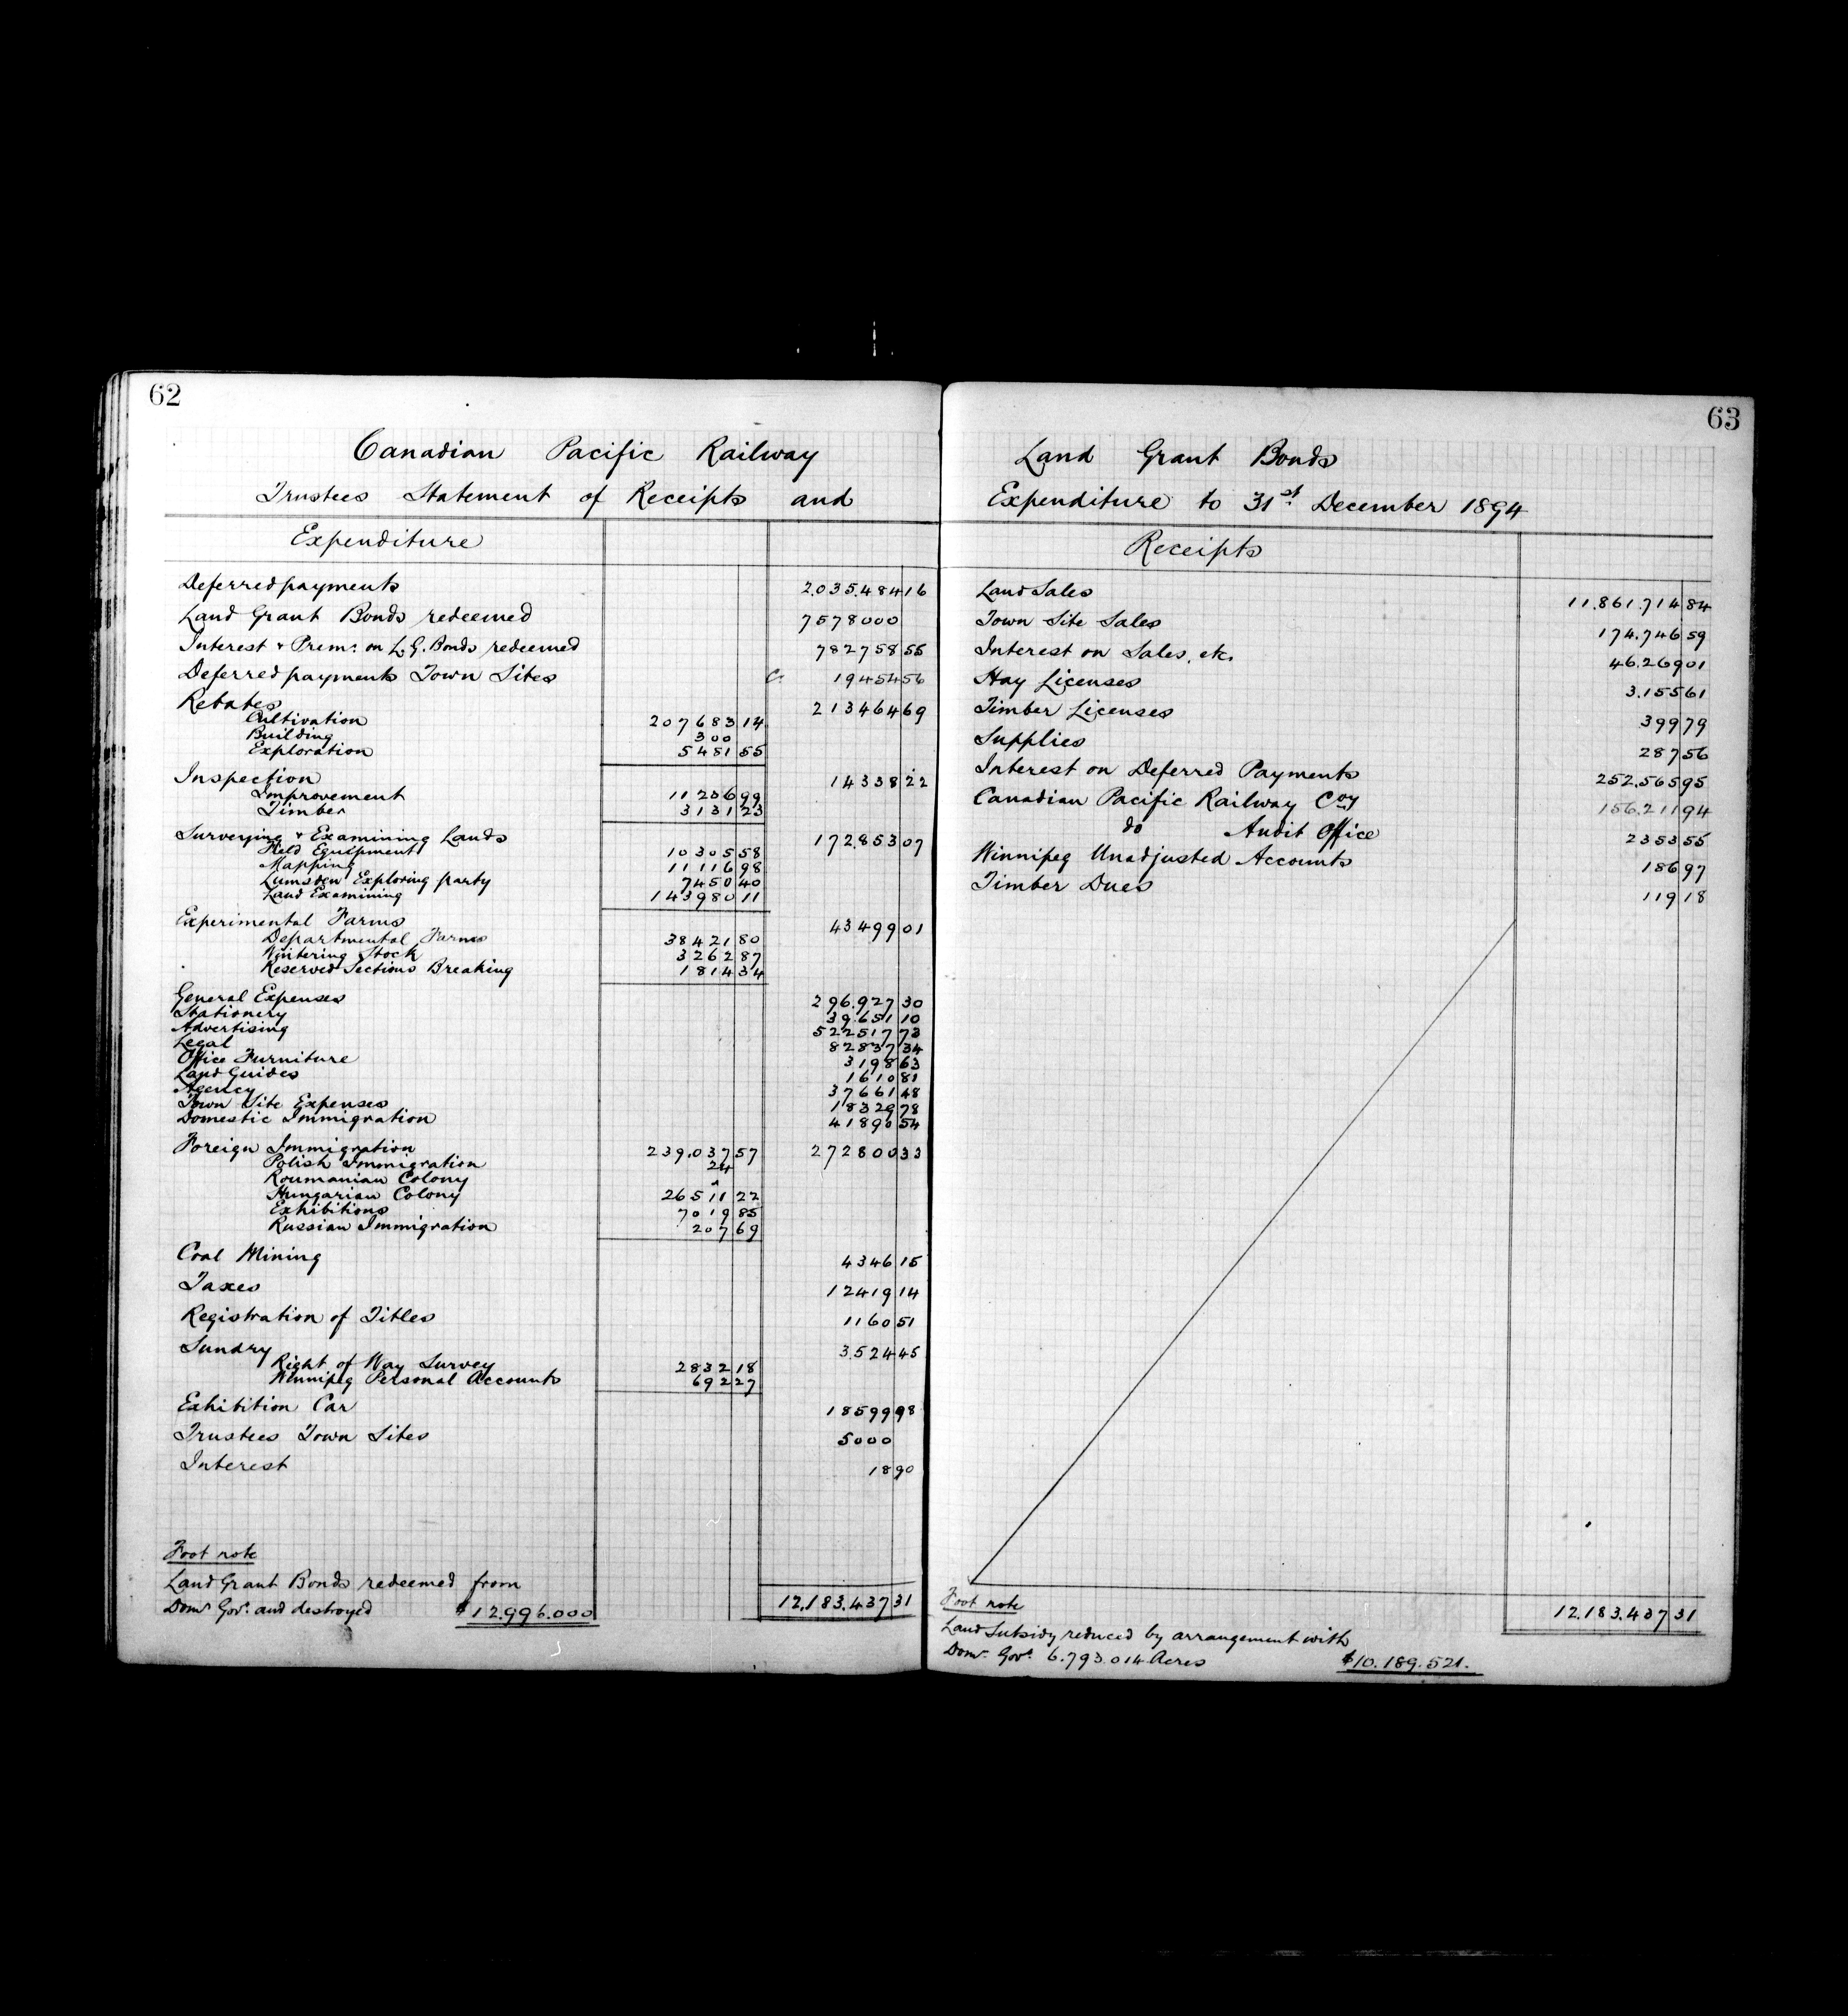 62
Canadian Pacific Railway
Trustees Statement of Receipts and
Expenditure
Deferred payments 2.035.484 16
Land Grant Bonds redeemed 7578000
Interest & Prem: on L.G. Bonds redeemed 782758 55
Deferred payments Town Sites Cr 19454 56
Rebates 213464 69
Cultivation 207683 14
Building 300
Exploration 5481 55
Inspection 14338 22
Improvement 11206 99
Timber 3131 23
Surveying & Examining Lands 172.853 07
Field Equipment 10305 58
Mapping 11116 98
Lumsden Exploring party 7450 40
Land Examining 143980 11
Experimental Farms 43499 01
Departmental Farms 38421 80
Wintering Stock 3262 87
Reserved Sections Breaking 1814 34
General Expenses 296.927 30
Stationery 39.651 10
Advertising 522517 73
Legal 82837 34
Office Furniture 3198 63
Land Guides 1610 81
Agency 37661 48
Town Site Expenses 18329 78
Domestic Immigration 41890 54
Foreign Immigration 239.037 57 272800 33
Polish Immigration 24
Roumanian Colony "
Hungarian Colony 26511 22
Exhibitions 7019 85
Russian Immigration 207 69
Coal Mining 4346 15
Taxes 12419 14
Registration of Titles 1160 51
Sundry 3.524 45
Right of Way Survey 2832 18
Winnipeg Personal Accounts 692 27
Exhibition Car 18599 98
Trustees Town Sites 5000
Interest 18 90
12.183.437 31
Foot note
Land Grant Bonds redeemed from
Domn Govt. and destroyed $12.996.000
63
Land Grant Bonds
Expenditure to 31st December 1894
Receipts
Land Sales 11.861.714 84
Town Site Sales 174.746 59
Interest on Sales, etc. 46.269 01
Hay Licenses 3.155 61
Timber Licenses 399 79
Supplies 287 56
Interest on Deferred Payments 252.565 95
Canadian Pacific Railway Coy 156.211 94
do Audit Office 2353 55
Winnipeg Unadjusted Accounts 186 97
Timber Dues 119 18
12.183.437 31
Foot note
Land Subsidy reduced by arrangement with
Domn Govt. 6.793.014 Acres $10.189.521.